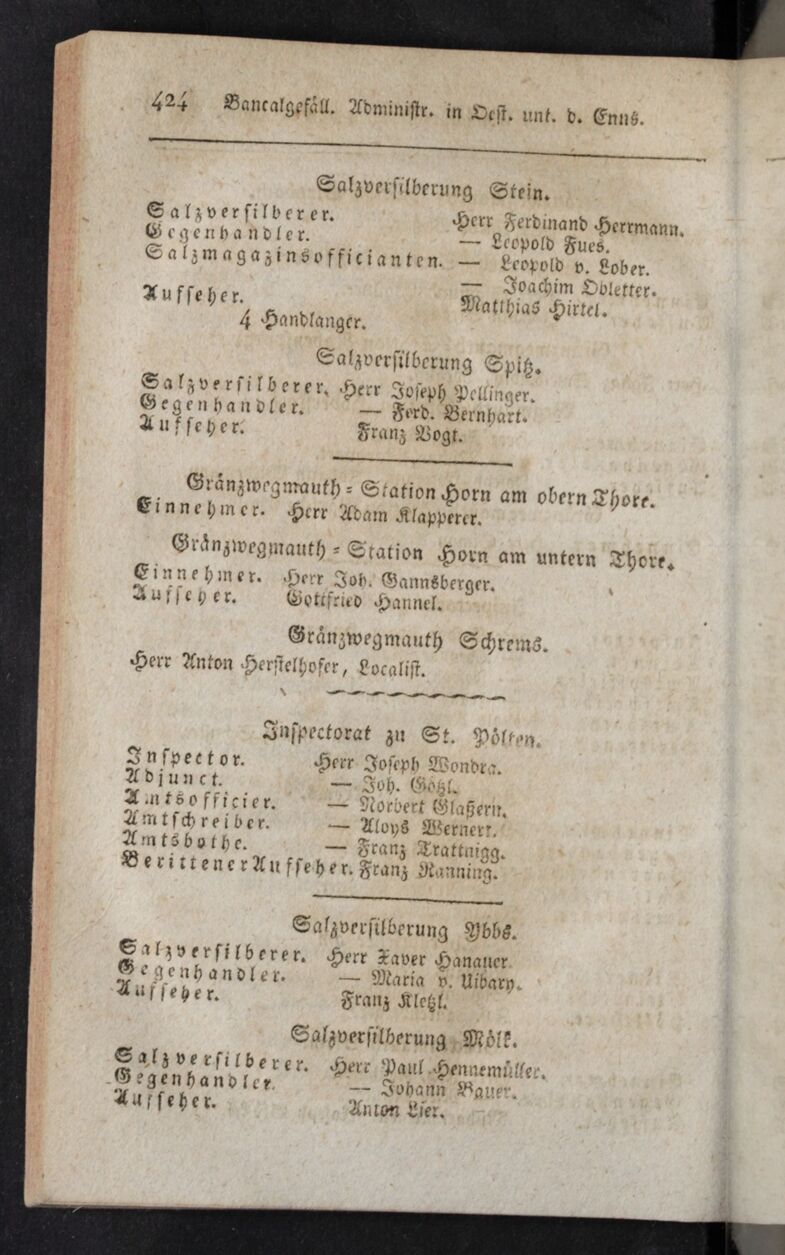 424 Bancalgefäll. Administr. in Oest. unt. d. Enns.
Salzversilberung Stein.
Salzversilberer. Herr Ferdinand Herrmann.
Gegenhandler. — Leopold Fues.
Salzmagazinsofficianten. — Leopold v. Lober.
— Joachim Obletter.
Aufseher. Matthias Hirtel.
4 Handlanger.
Salzversilberung Spitz.
Salzversilberer. Herr Joseph Pellinger.
Gegenhandler. — Ferd. Bernhart.
Aufseher. Franz Vogt.
Gränzwegmauth-Station Horn am obern Thore.
Einnehmer. Herr Adam Klapperer.
Gränzwegmauth-Station Horn am untern Thore.
Einnehmer. Herr Joh. Gannsberger.
Aufseher. Gottfried Hannel.
Gränzwegmauth Schrems.
Herr Anton Herstelhofer, Localist.
Inspectorat zu St. Pölten.
Inspector. Herr Joseph Wondra.
Adjunct. — Joh. Götzl.
Amtsofficier. — Norbert Glaßern.
Amtschreiber. — Aloys Wernert.
Amtsbothe. — Franz Trattnigg.
Berittener Aufseher. Franz Nanning.
Salzversilberung Ybbs.
Salzversilberer. Herr Xaver Hanauer.
Gegenhandler. — Maria v. Uibary.
Aufseher. Franz Kletzl.
Salzversilberung Mölk.
Salzversilberer. Herr Paul Hennemüller.
Gegenhandler. — Johann Bauer.
Aufseher. Anton Lier.